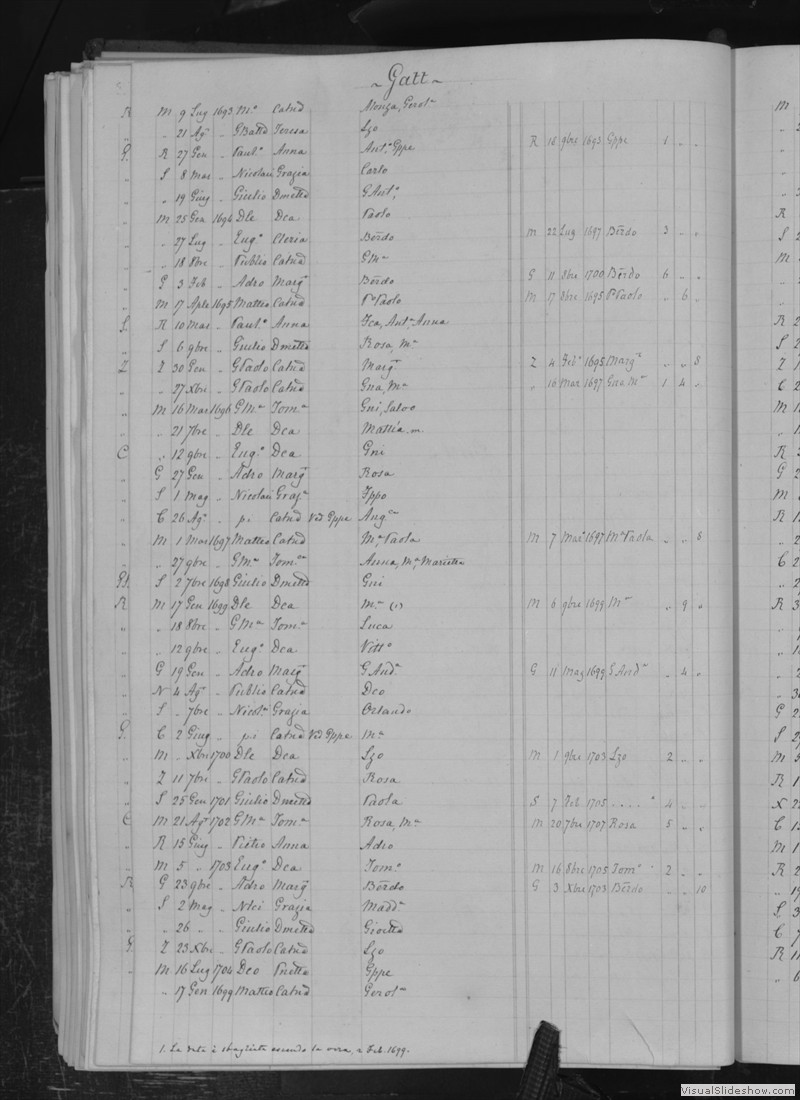 ~ Gatt ~
R M 9 Lug 1693 Mª Catnd Alonza, Gerolª
„ „ 21 Agº „ GBattd Teresa Lzo
G. R 27 Gen „ Paulº Anna Antº Gppe R 16 9bre 1693 Gppe 1 „ „
„ S 8 Mar „ Nicolau Grazia Carlo
„ „ 19 Giug „ Giulio Dmetta GAntº
„ M 25 Gen 1694 Dle Dea Paolo
„ „ 27 Lug „ Eugº Cleria Berdo M 22 Lug 1697 Berdo 3 „ „
„ „ 18 8bre „ Publio Catnd GMª
„ P 3 Feb „ Adro Margª Berdo G 11 8bre 1700 Berdo 6 „ „
„ M 17 Aple 1695 Matteo Catnd Pº Paolo M 17 8bre 1695 Pº Paolo „ 6 „
S. R 10 Mar „ Paulº Anna Fca, Antª Anna
„ S 6 9bre „ Giulio Dmetta Rosa, Mª
Z Z 30 Gen „ GPaolo Catnd Margª Z 4 Febº 1695 Margª „ „ 8
„ „ 27 Xbre „ GPaolo Catnd Gna, Mª „ 16 Mar 1697 Gna Mª 1 4 „
„ M 16 Mar 1696 GMª Tomª Gni, Salvo
„ „ 21 7bre „ Dle Dea Mattia, m.
C „ 12 9bre „ Eugº Dea Gni
„ G 27 Gen „ Adro Margª Rosa
„ S 1 Mag „ Nicolau Grazª Fppo
„ C 26 Agº „ pi Catnd Ved Gppe Angca
„ M 1 Mar 1697 Matteo Catnd Mª Paola M 7 Marº 1697 Mª Paola „ „ 8
„ „ 27 9bre „ GMª Tomca Anna, Mª Marietta
Pl. S 2 7bre 1698 Giulio Dmetta Gni
R M 17 Gen 1699 Dle Dea Mª (1) M 6 9bre 1699 Mª „ 9 „
„ „ 18 8bre „ GMª Tomª Luca
„ „ 12 9bre „ Eugº Dea Vitto
„ G 19 Gen „ Adro Margª GAndª G 11 Mag 1699 GAndª „ 4 „
„ N 4 Agº „ Publio Catnd Dco
„ S „ 7bre „ Nicolª Grazia Orlando
G. C 2 Giug „ pi Catnd Ved Gppe Mª
„ M „ Xbre 1700 Dle Dea Lzo M 1 9bre 1703 Lzo 2 „ „
„ Z 11 7bre „ GPaolo Catnd Rosa
„ S 25 Gen 1701 Giulio Dmetta Paola S 7 Feb 1705 . . . . ª 4 „ „
C M 21 Agº 1702 GMª Tomª Rosa, Mª M 20 7bre 1707 Rosa 5 „ „
„ R 15 Giug „ Pietro Anna Adro
„ M 5 „ 1703 Eugº Dea Tomº M 16 8bre 1705 Tomº 2 „ „
R G 23 9bre „ Adro Margª Berdo G 3 Xbre 1703 Berdo „ „ 10
„ S 2 Mag „ Nlci Grazia Maddª
„ „ 26 „ „ Giulio Dmetta Giuetta
G. Z 23 Xbre „ GPaolo Catnd Lzo
„ M 16 Lug 1704 Dco Pnetta Gppe
„ 17 Gen 1699 Matteo Catnd Gerolª
1. La data è sbagliata essendo la vera, 2 Feb. 1699.
VisualSlideshow.com